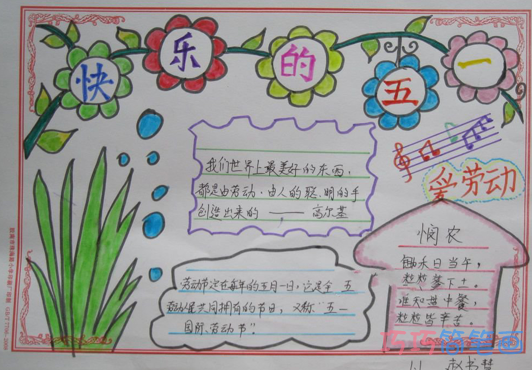 快乐的五一
我们世界上最美好的东西,
都是由劳动、由人的聪明的手
创造出来的 —— 高尔基
爱劳动
悯农
锄禾日当午,
下土。
谁知盘中餐,
粒粒皆辛苦。
劳动节定在每年的五月一日,它是全
劳动者共同拥有的节日,又称"五一
国际劳动节"!
巧巧简笔画